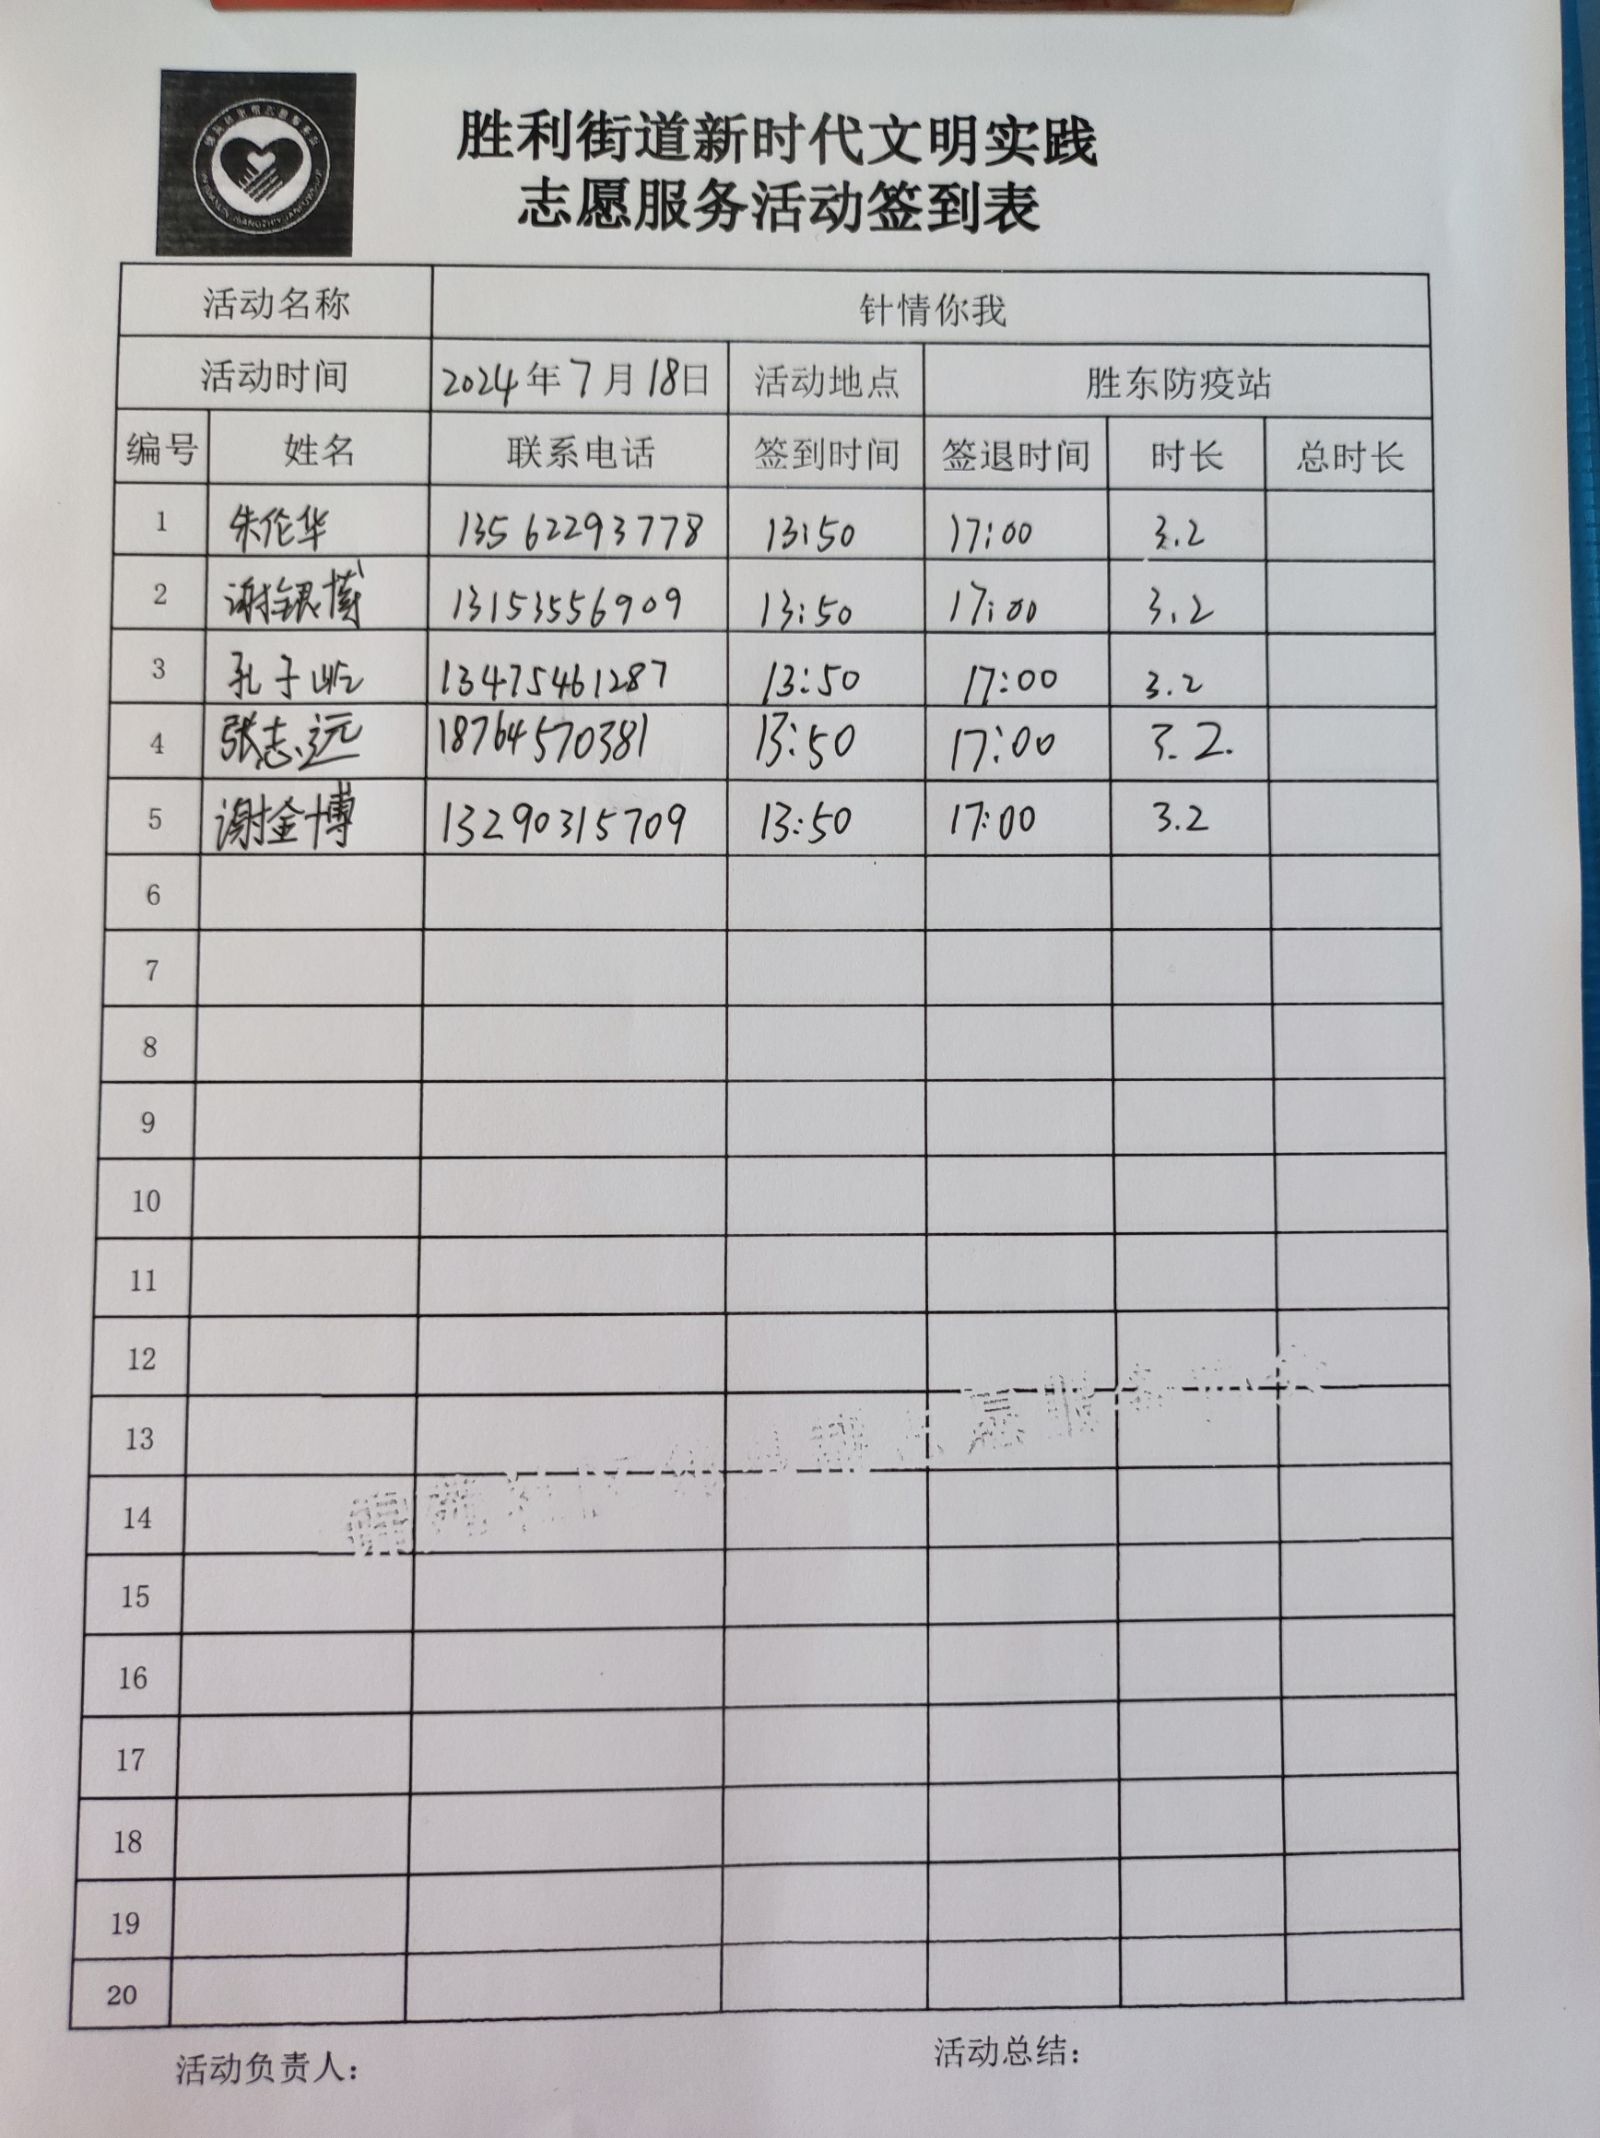 胜利街道新时代文明实践
志愿服务活动签到表
活动名称 针情你我
活动时间 2024年7月18日 活动地点 胜东防疫站
编号 姓名 联系电话 签到时间 签退时间 时长 总时长
1 朱伦华 13562293778 13:50 17:00 3.2
2 谢银博 13153556909 13:50 17:00 3.2
3 孔子屹 13475461287 13:50 17:00 3.2
4 张志远 18764570381 13:50 17:00 3.2.
5 谢金博 13290315709 13:50 17:00 3.2
6
7
8
9
10
11
12
13
14
15
16
17
18
19
20
活动负责人: 活动总结: